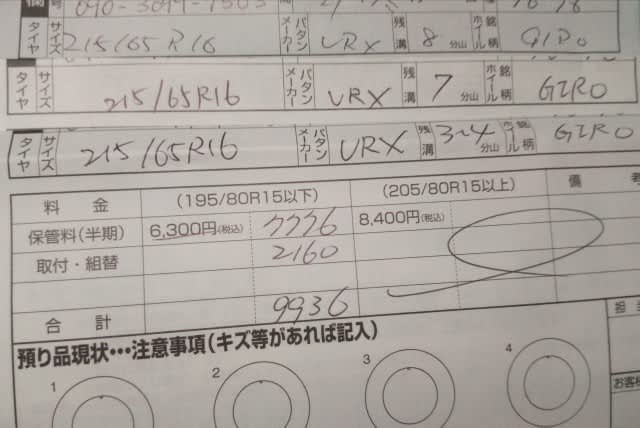 号 090-3099-1503
タイヤ サイズ 215/65R16 メーカー パタン VRX 残溝 8分山 ホイール 銘柄 GIRO
タイヤ サイズ 215/65R16 メーカー パタン VRX 残溝 7分山 ホイール 銘柄 GIRO
タイヤ サイズ 215/65R16 メーカー パタン VRX 残溝 3~4分山 ホイール 銘柄 GIRO
料金 (195/80R15以下) (205/80R15以上) 備考
保管料(半期) 6,300円(税込) 7776 8,400円(税込)
取付・組替 2160
合計 9936
預り品現状…注意事項(キズ等があれば記入)
担
1 2 3 4
お客様